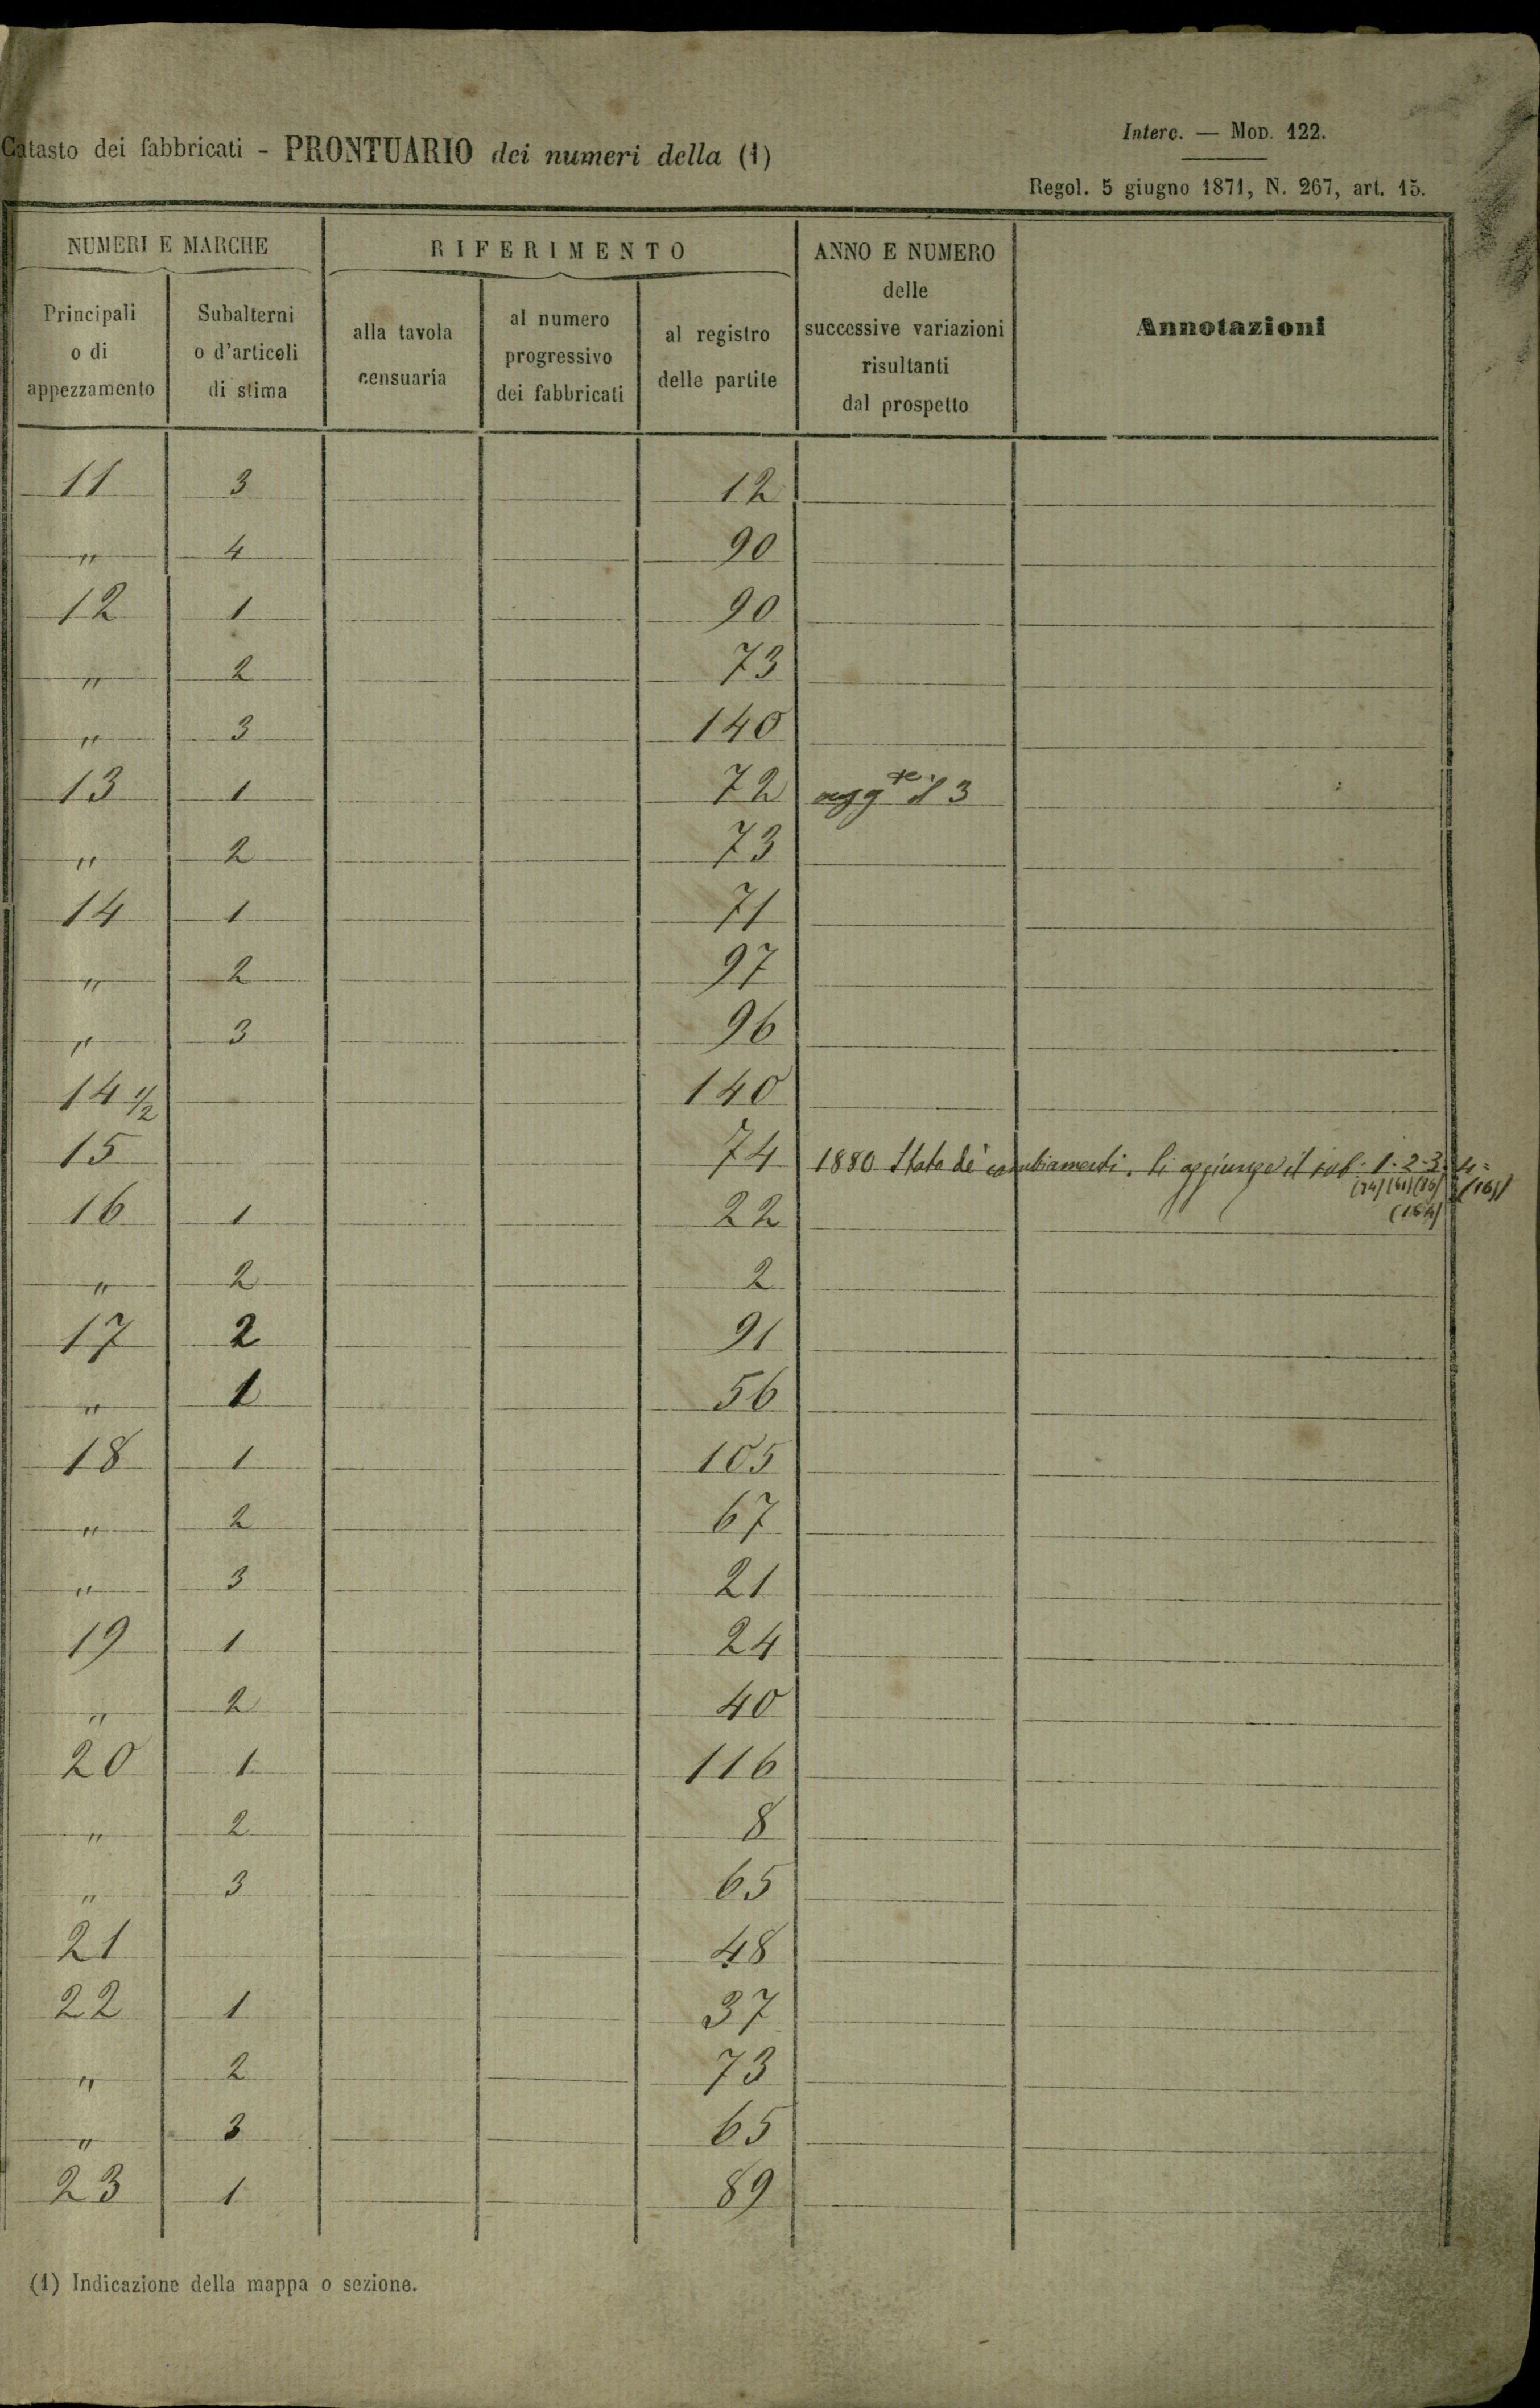 Catasto dei fabbricati - PRONTUARIO dei numeri della (1)
Interc. — MOD. 122.
Regol. 5 giugno 1871, N. 267, art. 15.
NUMERI E MARCHE
RIFERIMENTO
ANNO E NUMERO delle successive variazioni risultanti dal prospetto
Annotazioni
Principali o di appezzamento
Subalterni o d'articoli di stima
alla tavola censuaria
al numero progressivo dei fabbricati
al registro delle partite
11 3 12
" 4 90
12 1 90
" 2 73
" 3 140
13 1 72 il 3
" 2 73
14 1 71
" 2 97
" 3 96
14 1/2 140
15 74 1880 Stato de' cambiamenti. Si aggiunge il sub. 1. 2. 3. 4=
16 1 22
" 2 2
17 2 91
" 1 56
18 1 105
" 2 67
" 3 21
19 1 24
" 2 40
20 1 116
" 2 8
" 3 65
21 48
22 1 37
" 2 73
" 3 65
23 1 89
(1) Indicazione della mappa o sezione.